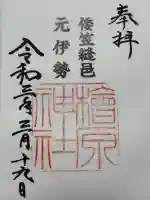 奉拝
倭笠縫邑
元伊勢
檜原神社
令和三年三月十九日